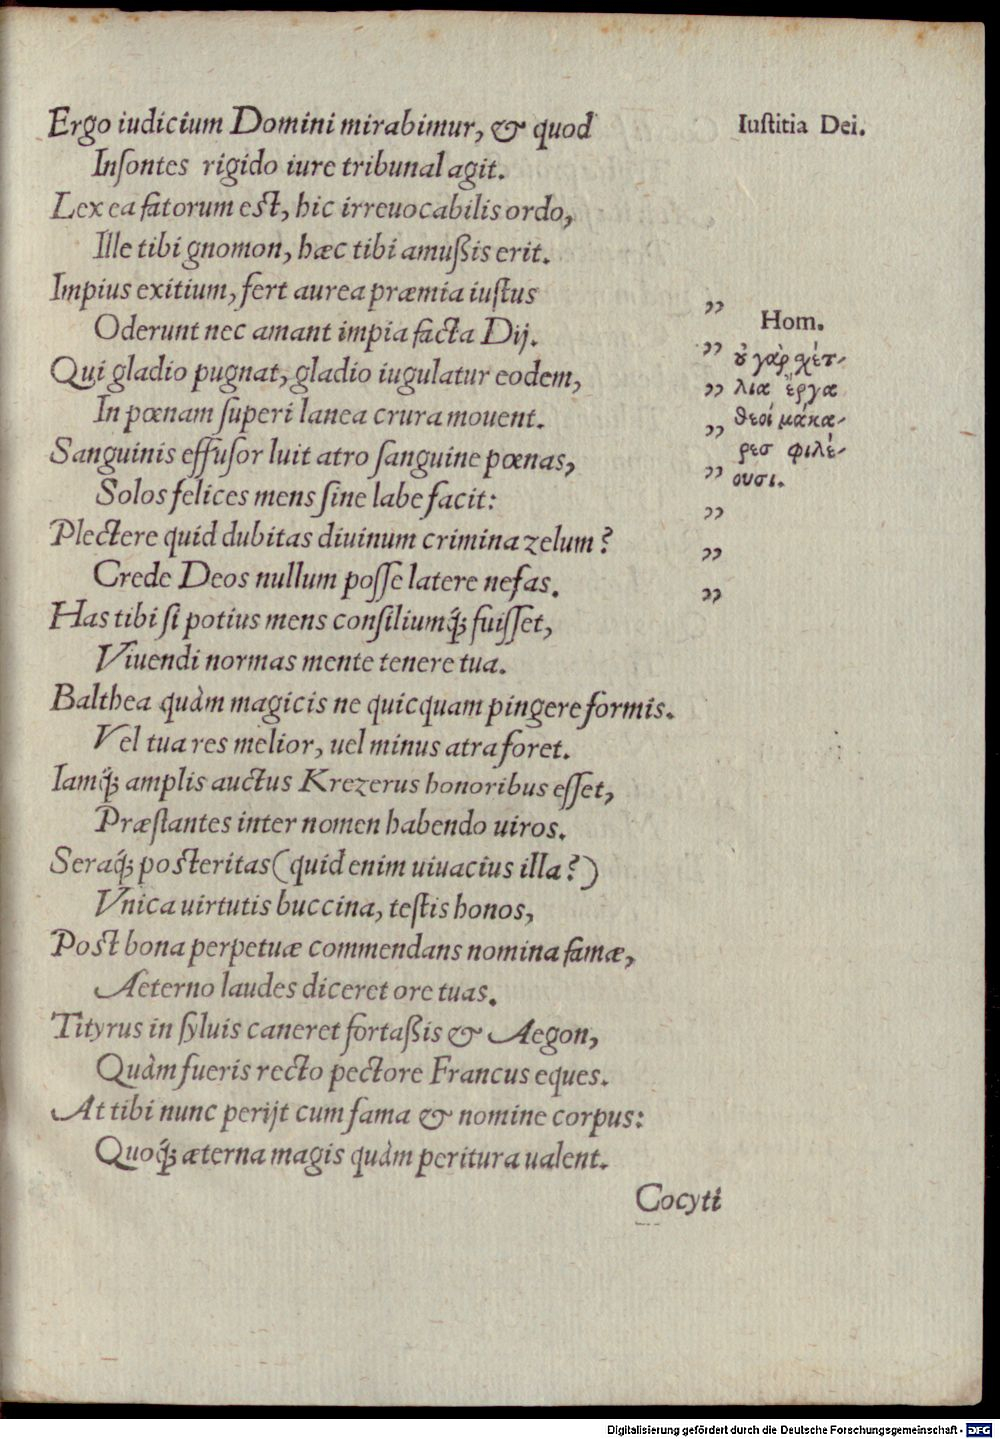 Ergo iudicium Domini mirabimur, & quod
Insontes rigido iure tribunal agit.
Lex ea fatorum est, hic irreuocabilis ordo,
Ille tibi gnomon, hæc tibi amußis erit.
Impius exitium, fert aurea præmia iustus
Oderunt nec amant impia facta Dij.
Qui gladio pugnat, gladio iugulatur eodem,
In pœnam superi lanea crura mouent.
Sanguinis effusor luit atro sanguine pœnas,
Solos felices mens sine labe facit:
Plectere quid dubitas diuinum crimina zelum?
Crede Deos nullum posse latere nefas.
Has tibi si potius mens consiliumq́; fuisset,
Viuendi normas mente tenere tua.
Balthea quàm magicis ne quicquam pingere formis.
Vel tua res melior, uel minus atra foret.
Iamq́; amplis auctus Krezerus honoribus esset,
Præstantes inter nomen habendo uiros.
Seraq́; posteritas (quid enim uiuacius illa?)
Vnica uirtutis buccina, testis honos,
Post bona perpetuæ commendans nomina famæ,
Aeterno laudes diceret ore tuas.
Tityrus in syluis caneret fortaßis & Aegon,
Quàm fueris recto pectore Francus eques.
At tibi nunc perijt cum fama & nomine corpus:
Quoq́; æterna magis quàm peritura ualent.
Cocyti
Iustitia Dei.
Hom.
ȣ̓ γὰρ χέτ-
λια ἔργα
θεοί μάκα-
ρεσ φιλέ-
ουσι.
„
„
„
„
„
„
„
„
Digitalisierung gefördert durch die Deutsche Forschungsgemeinschaft - DFG